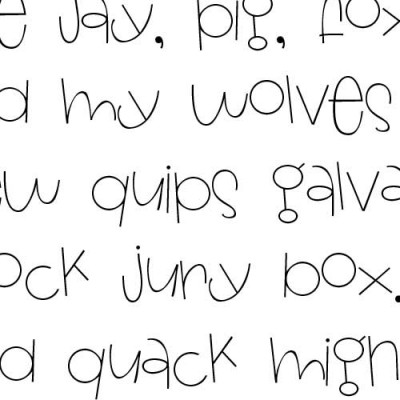 e jay, pig, fox
d my wolves
ew quips galva
ock jury box.
d quack migh